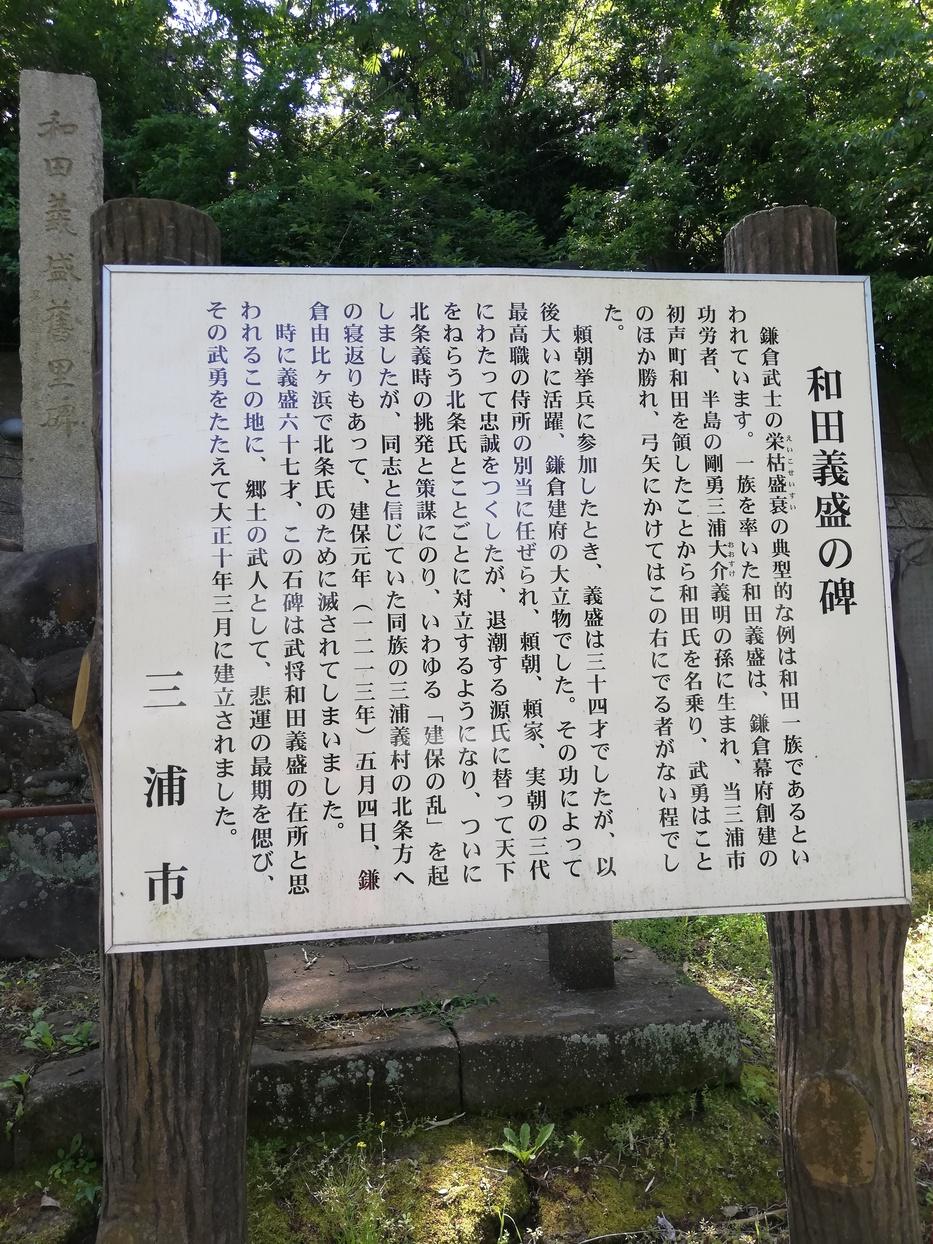 和田義盛の碑
鎌倉武士の栄枯盛衰の典型的な例は和田一族であるとい
えいこせいすい
われています。一族を率いた和田義盛は、鎌倉幕府創建の
功労者、半島の剛勇三浦大介義明の孫に生まれ、当三浦市
おおすけ
初声町和田を領したことから和田氏を名乗り、武勇はこと
のほか勝れ、弓矢にかけてはこの右にでる者がない程でし
た。
頼朝挙兵に参加したとき、義盛は三十四才でしたが、以
後大いに活躍、鎌倉建府の大立物でした。その功によって
最高職の侍所の別当に任ぜられ、頼朝、頼家、実朝の三代
にわたって忠誠をつくしたが、退潮する源氏に替って天下
をねらう北条氏とことごとに対立するようになり、ついに
北条義時の挑発と策謀にのり、いわゆる「建保の乱」を起
しましたが、同志と信じていた同族の三浦義村の北条方へ
の寝返りもあって、建保元年（一二一三年）五月四日、鎌
倉由比ヶ浜で北条氏のために滅されてしまいました。
時に義盛六十七才、この石碑は武将和田義盛の在所と思
われるこの地に、郷土の武人として、悲運の最期を偲び、
その武勇をたたえて大正十年三月に建立されました。
三浦市
和田義盛舊里碑